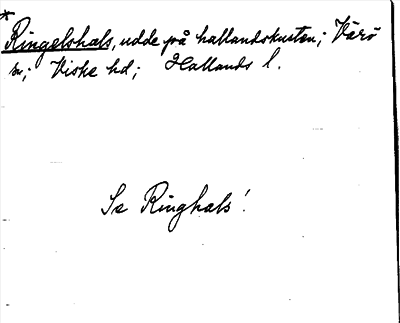 * Ringelshals, udde på hallandskusten; Värö
sn; Viske hd; Hallands l.
Se Ringhals!